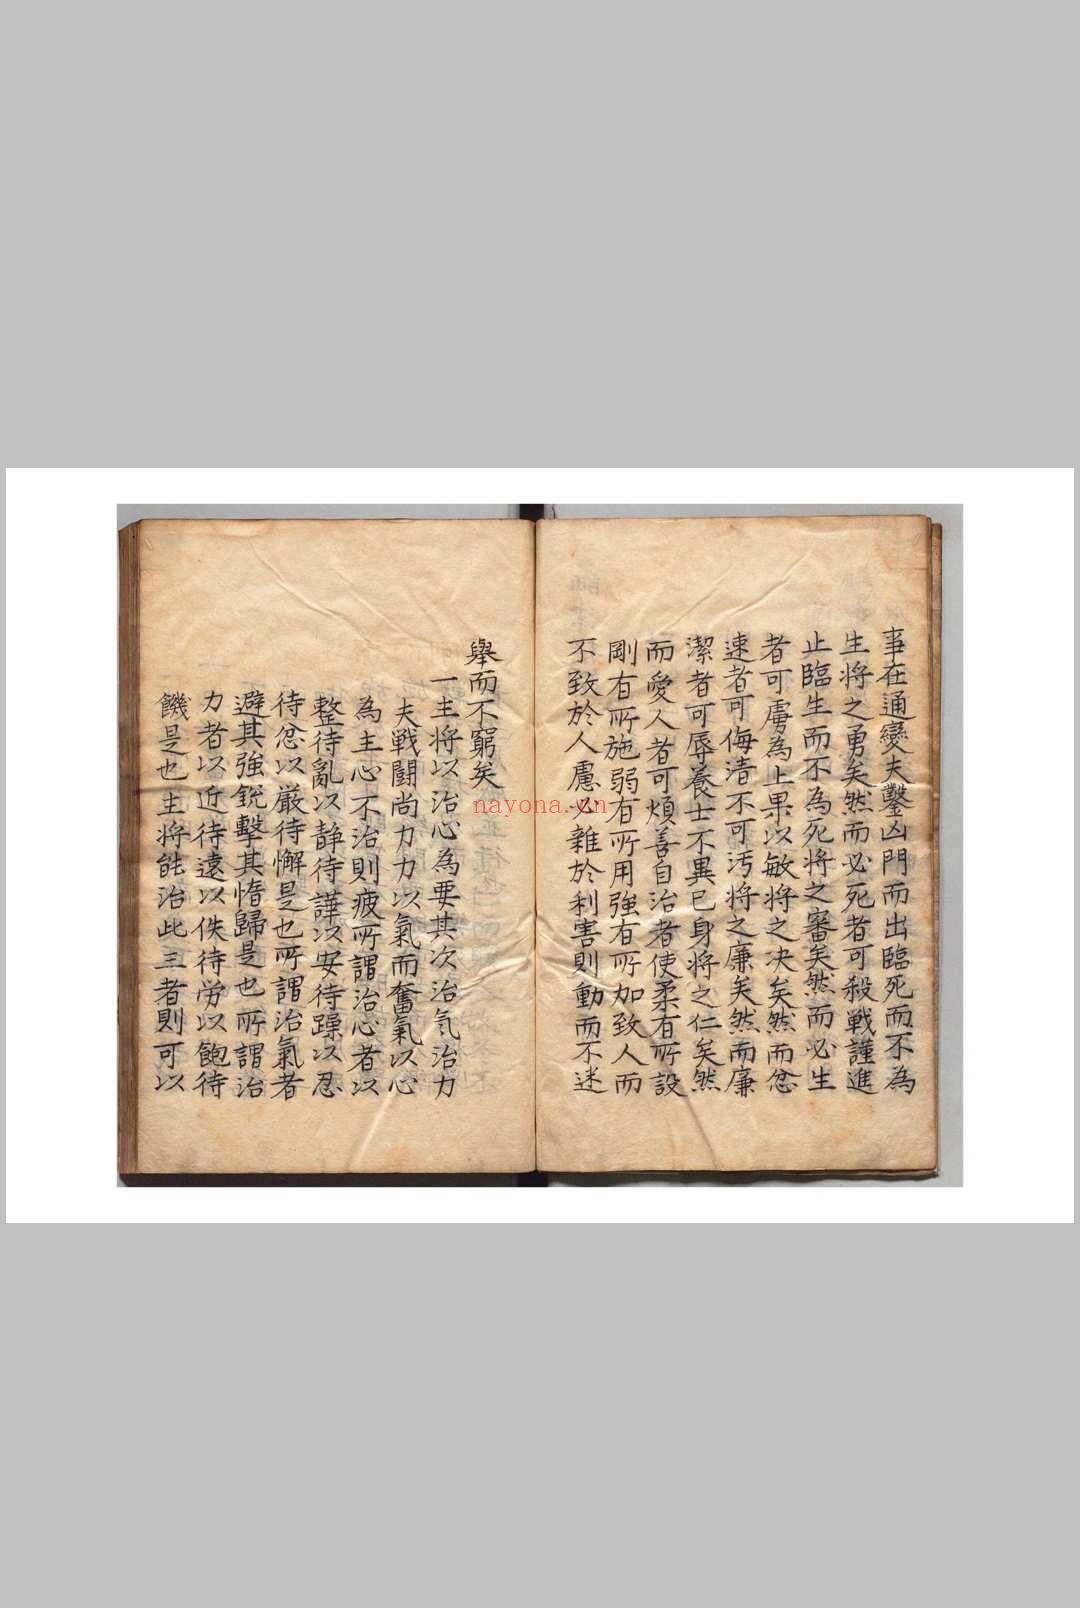 事在通變夫鑿凶門而出臨死而不為
生將之勇矣然而必死者可殺戰謹進
止臨生而不為死將之審矣然而必生
者可虜為上果以敏將之决矣然而忿
速者可侮清不可汚將之廉矣然而廉
潔者可辱養士不異已身將之仁矣然
而愛人者可煩善自治者使柔有所設
剛有所施弱有所用強有所加致人而
不致於人慮必雜於利害則動而不迷
舉而不窮矣
一主将以治心為要其次治気治力
夫戦闘尚力力以氣而奮氣以心
為主心不治則疲所謂治心者以
整待亂以静待譁以安待躁以忍
待忿以厳待懈是也所謂治氣者
避其強銳擊其惰歸是也所謂治
力者以近待遠以佚待労以飽待
饑是也主将能治此三者則可以
nayona.vn